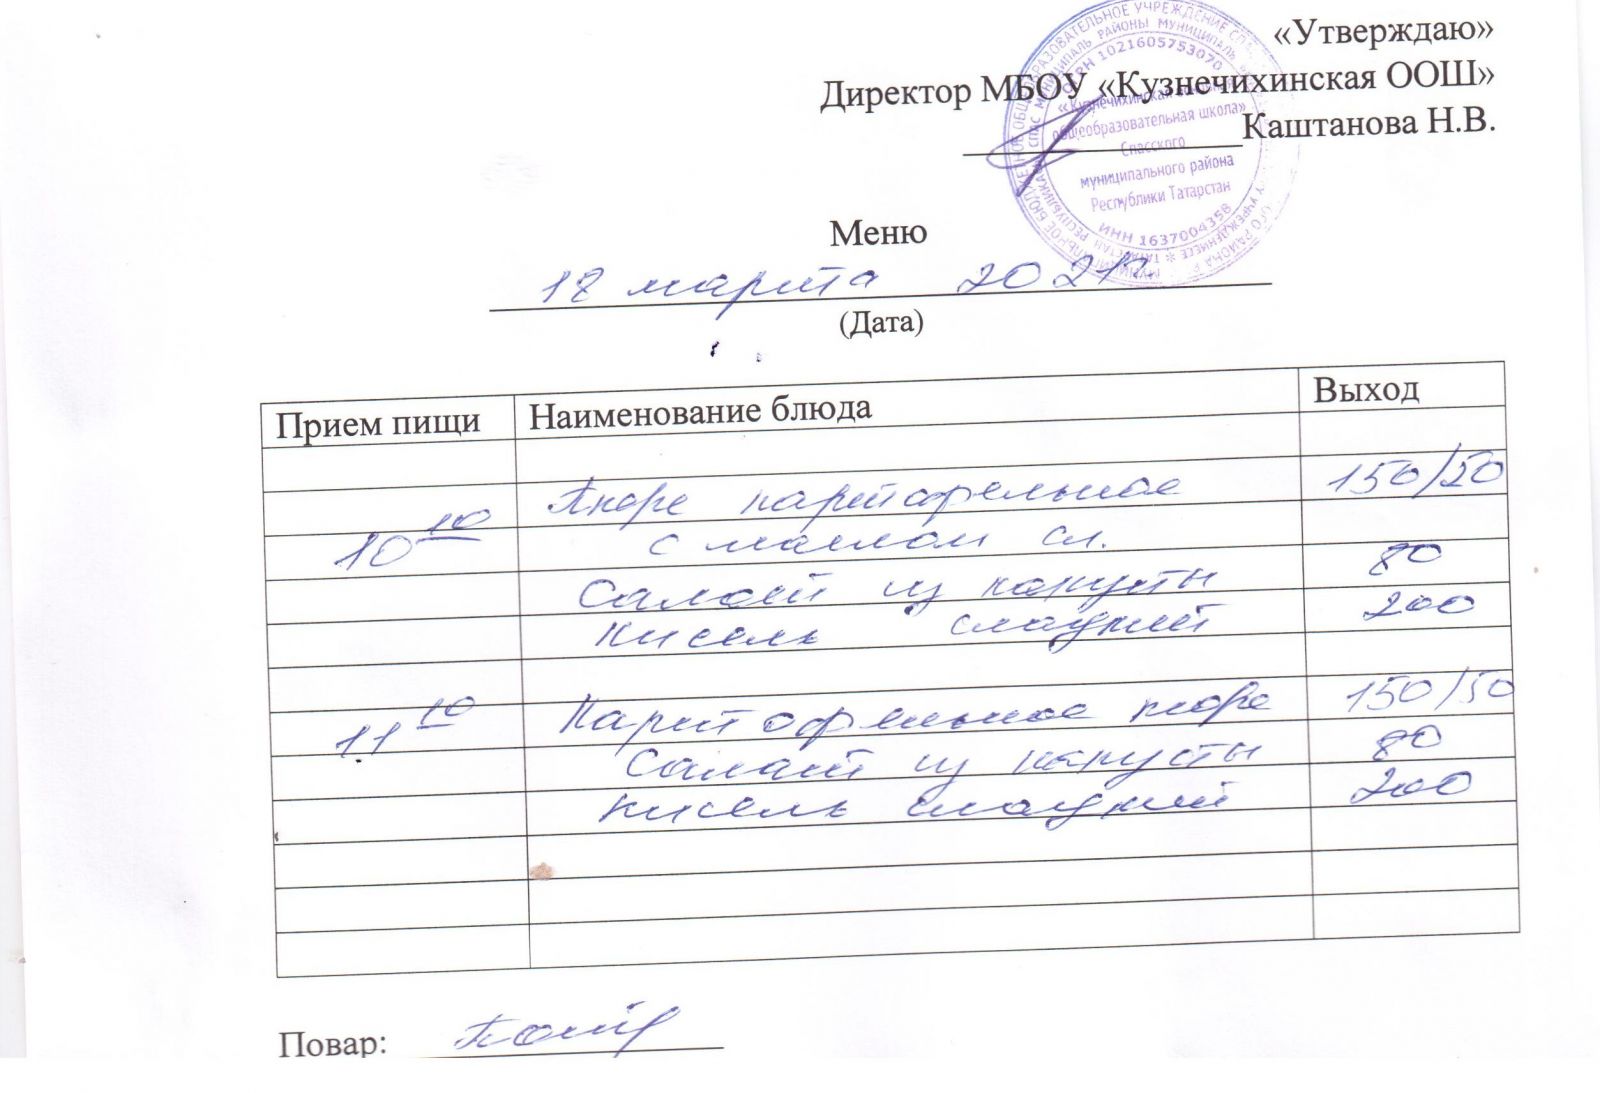 «Утверждаю»
Директор МБОУ «Кузнечихинская ООШ»
Каштанова Н.В.
ОГРН 1021605753070
«Кузнечихинская основная
общеобразовательная школа»
Спасского
муниципального района
Республики Татарстан
ИНН 1637004358
Меню
18 марта 2021г.
(Дата)
Прием пищи Наименование блюда Выход
Пюре картофельное 150/50
10 10 с маслом сл.
Салат из капусты 80
Кисель сладкий 200
11 10 Картофельное пюре 150/50
Салат из капусты 80
Кисель сладкий 200
Повар: